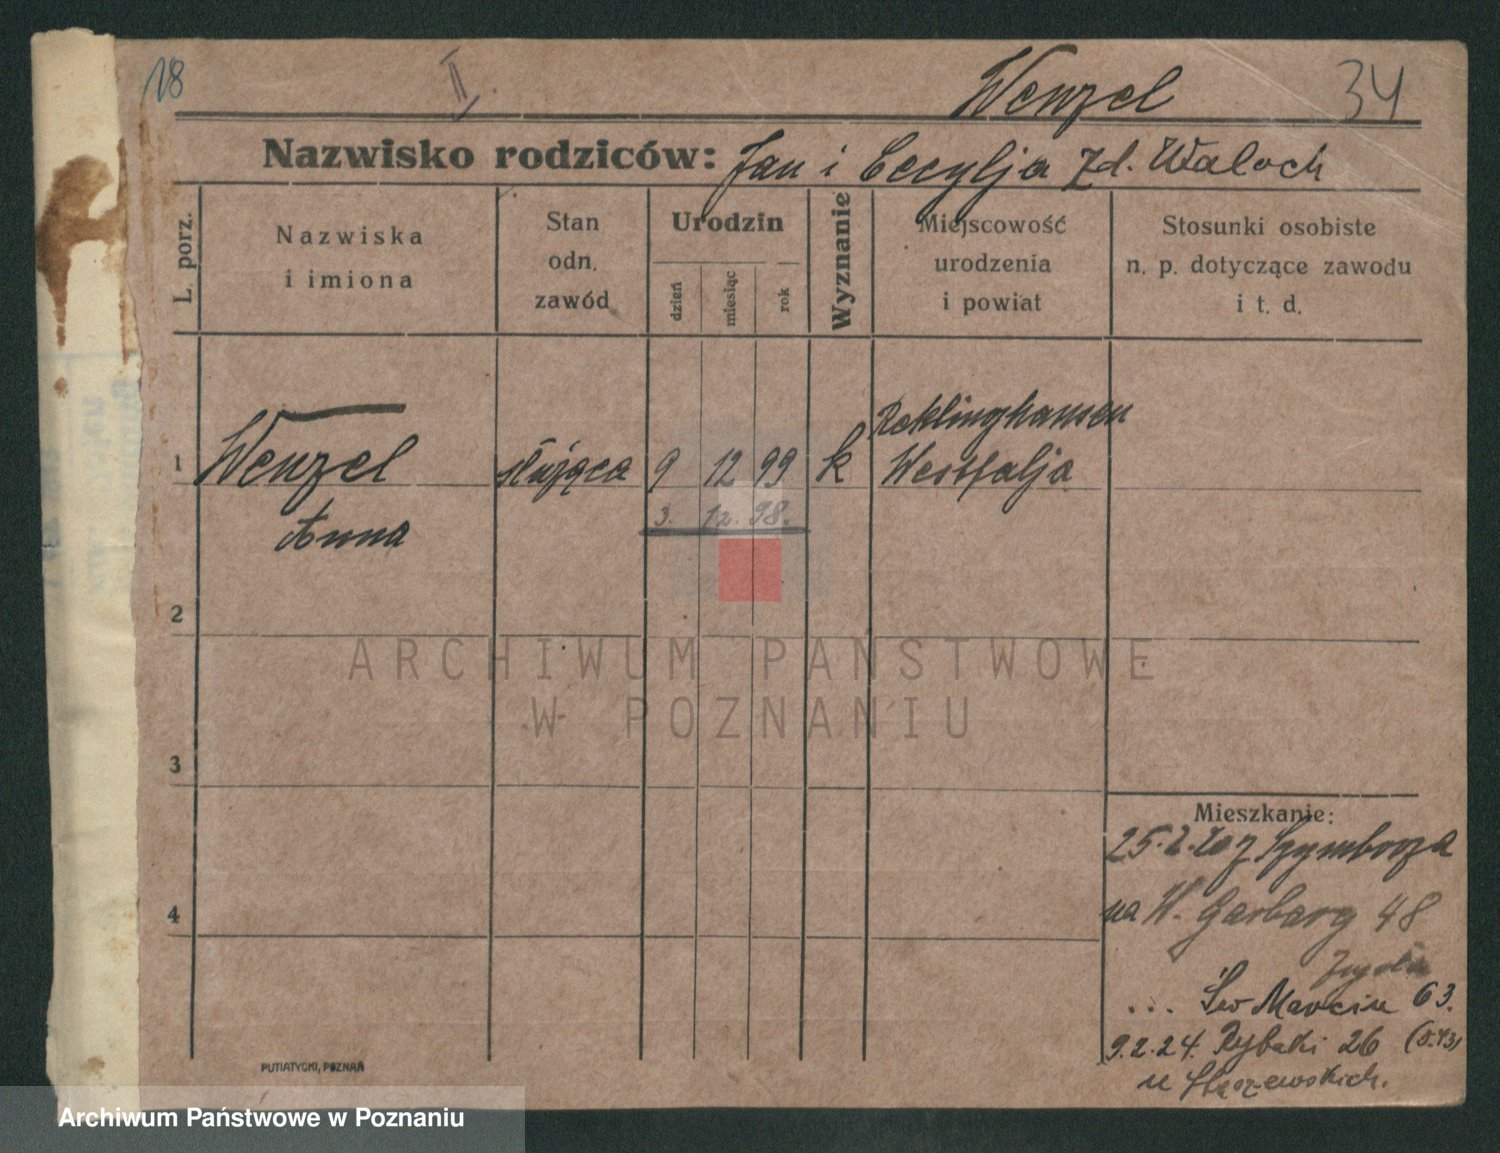 18 II. Wenzel 34
Nazwisko rodziców: Jan i Cecylja zd. Waloch
L. porz.
Nazwiska
i imiona
Stan
odn.
zawód
Urodzin
dzień
miesiąc
rok
Wyznanie
Miejscowość
urodzenia
i powiat
Stosunki osobiste
n. p. dotyczące zawodu
i t. d.
1 Wenzel służąca 9 12 99 k Reklinghausen
Westfalja
Anna 3. 12. 98.
2
3
4
ARCHIWUM PAŃSTWOWE
W POZNANIU
Mieszkanie:
25.2. z Szymborza
na W. Garbary 48
... Św Marcin 63.
9.2.24. Rybaki 26
u
PUTIATYCKI, POZNAŃ
Archiwum Państwowe w Poznaniu